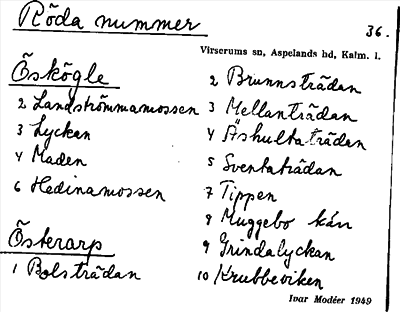 Röda nummer
36.
Virserums sn, Aspelands hd, Kalm. l.
Öskögle
2 Landströmmamossen
3 Lyckan
4 Maden
6 Hedinamossen
Österarp
1 Bolsträdan
2 Brunnsträdan
3 Mellanträdan
4 Åshultaträdan
5 Sventaträdan
7 Tippen
8 Muggebo kärr
9 Grindalyckan
10 Krubbeviken
Ivar Modéer 1949